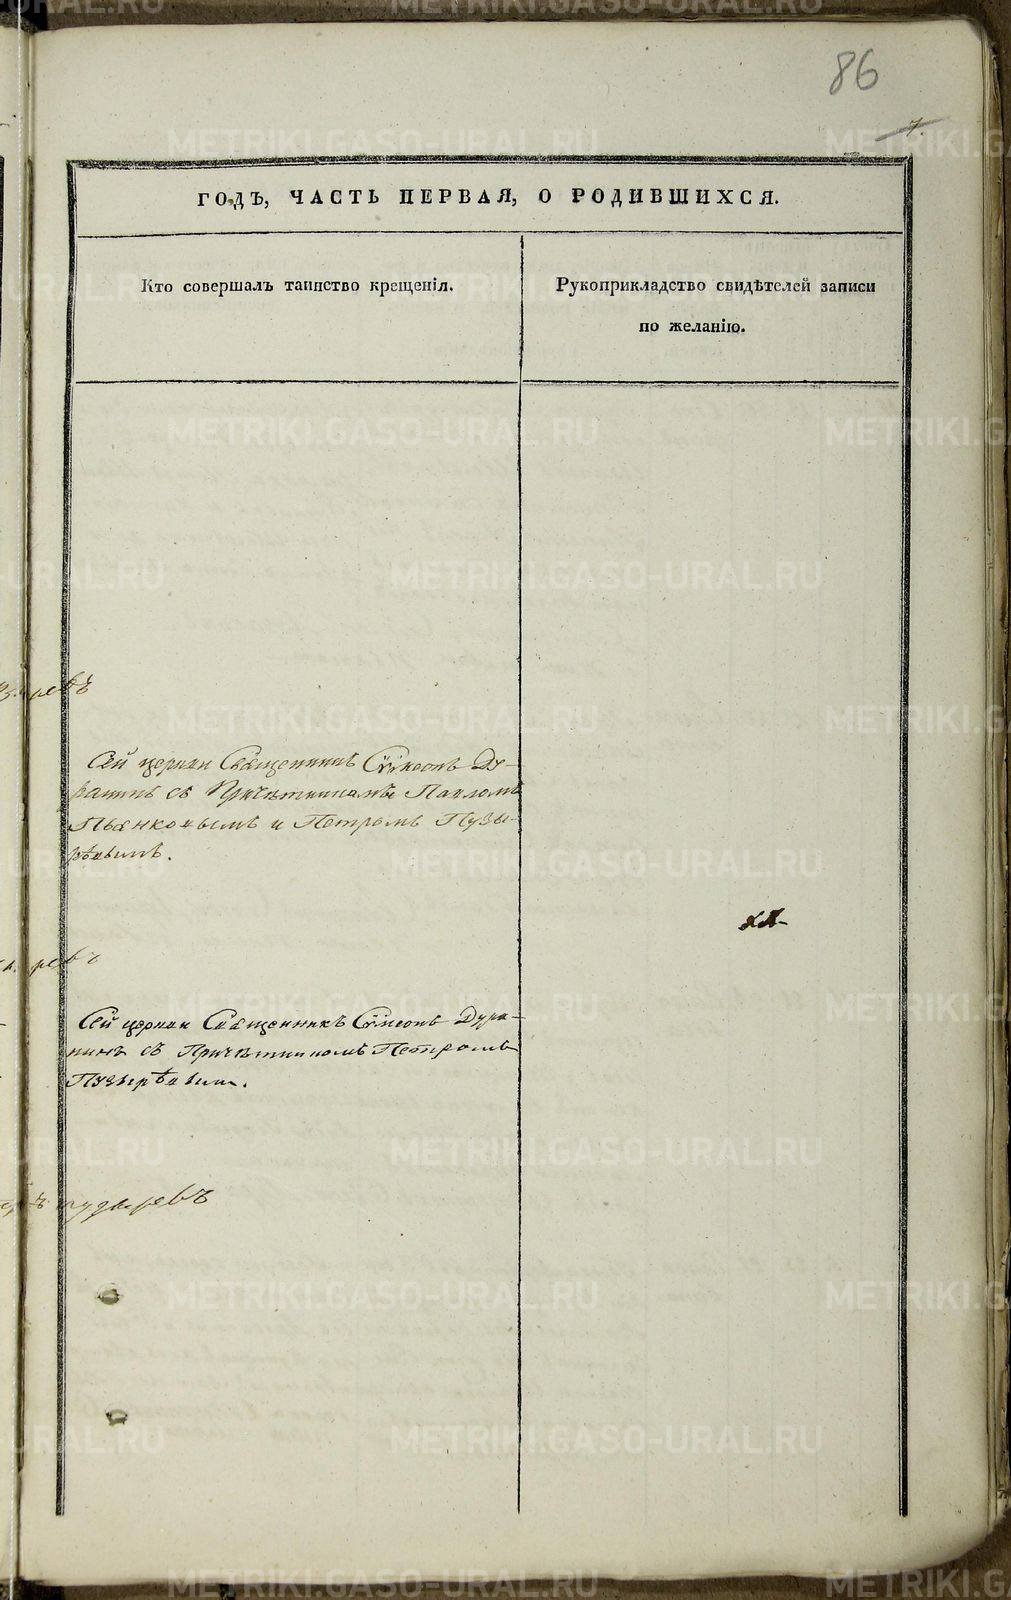 86
7.
ГОДЪ, ЧАСТЬ ПЕРВАЯ, О РОДИВШИХСЯ.
Кто совершалъ таинство крещенія.
Рукоприкладство свидѣтелей записи
по желанію.
Сей церкви Священникъ Сѵмеонъ Ду-
ракинъ съ Причѣтниками Павломъ
Пьянковымъ и Петромъ Пузы-
рѣвымъ.
Сей церкви Священникъ Сѵмеонъ Дура-
кинъ съ Причѣтникомъ Петромъ
Пузырѣвым.
Пузыревъ
METRIKI.GASO-URAL.RU